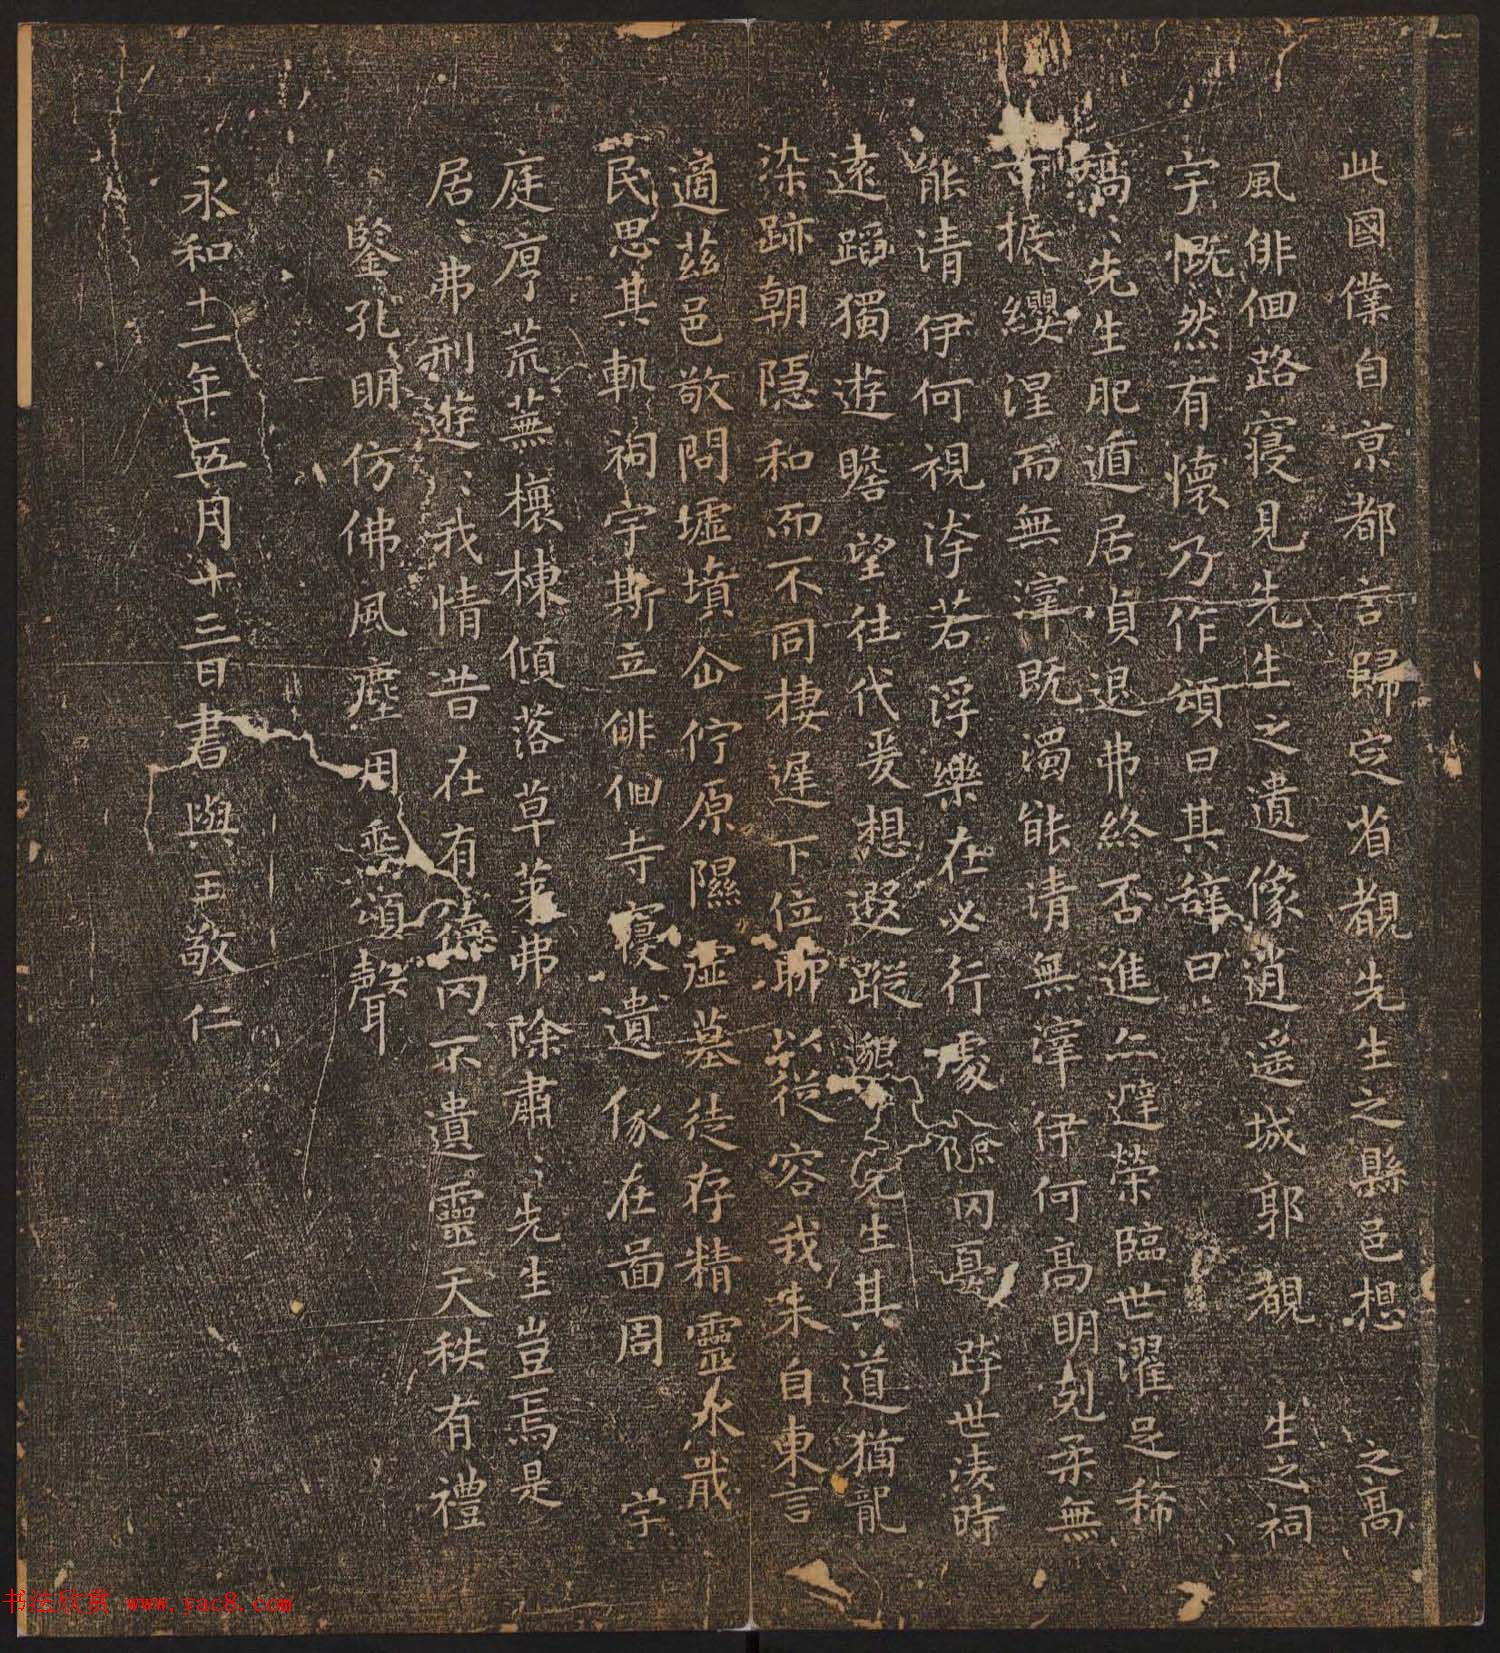 此國僕自京都言歸定省覩先生之縣邑想 之高
風俳佪路寢見先生之遺像逍遥城郭覩 生之祠
宇慨然有懷乃作頌曰其辭曰
矯〻先生肥遁居貞退弗終否進亦避榮臨世濯足稀
古振纓涅而無滓既濁能清無滓伊何高明剋柔無
能清伊何視洿若浮樂在必行處儉罔憂跨世淩時
遠蹈獨遊瞻望往代爰想遐蹤邈〻先生其道猶龍
染跡朝隱和而不同棲遲下位聊以從容我来自東言
適茲邑敬問墟墳企佇原隰虛墓徒存精靈永戢
民思其軌祠宇斯立俳佪寺寢遺像在啚周 宇
庭序荒蕪榱棟傾落草萊弗除肅〻先生豈焉是
居〻弗刑遊〻我情昔在有德罔不遺靈天秩有禮
鑒孔明仿佛風塵用垂頌聲
永和十二年五月十三日書與王敬仁
书法欣赏 www.yac8.com